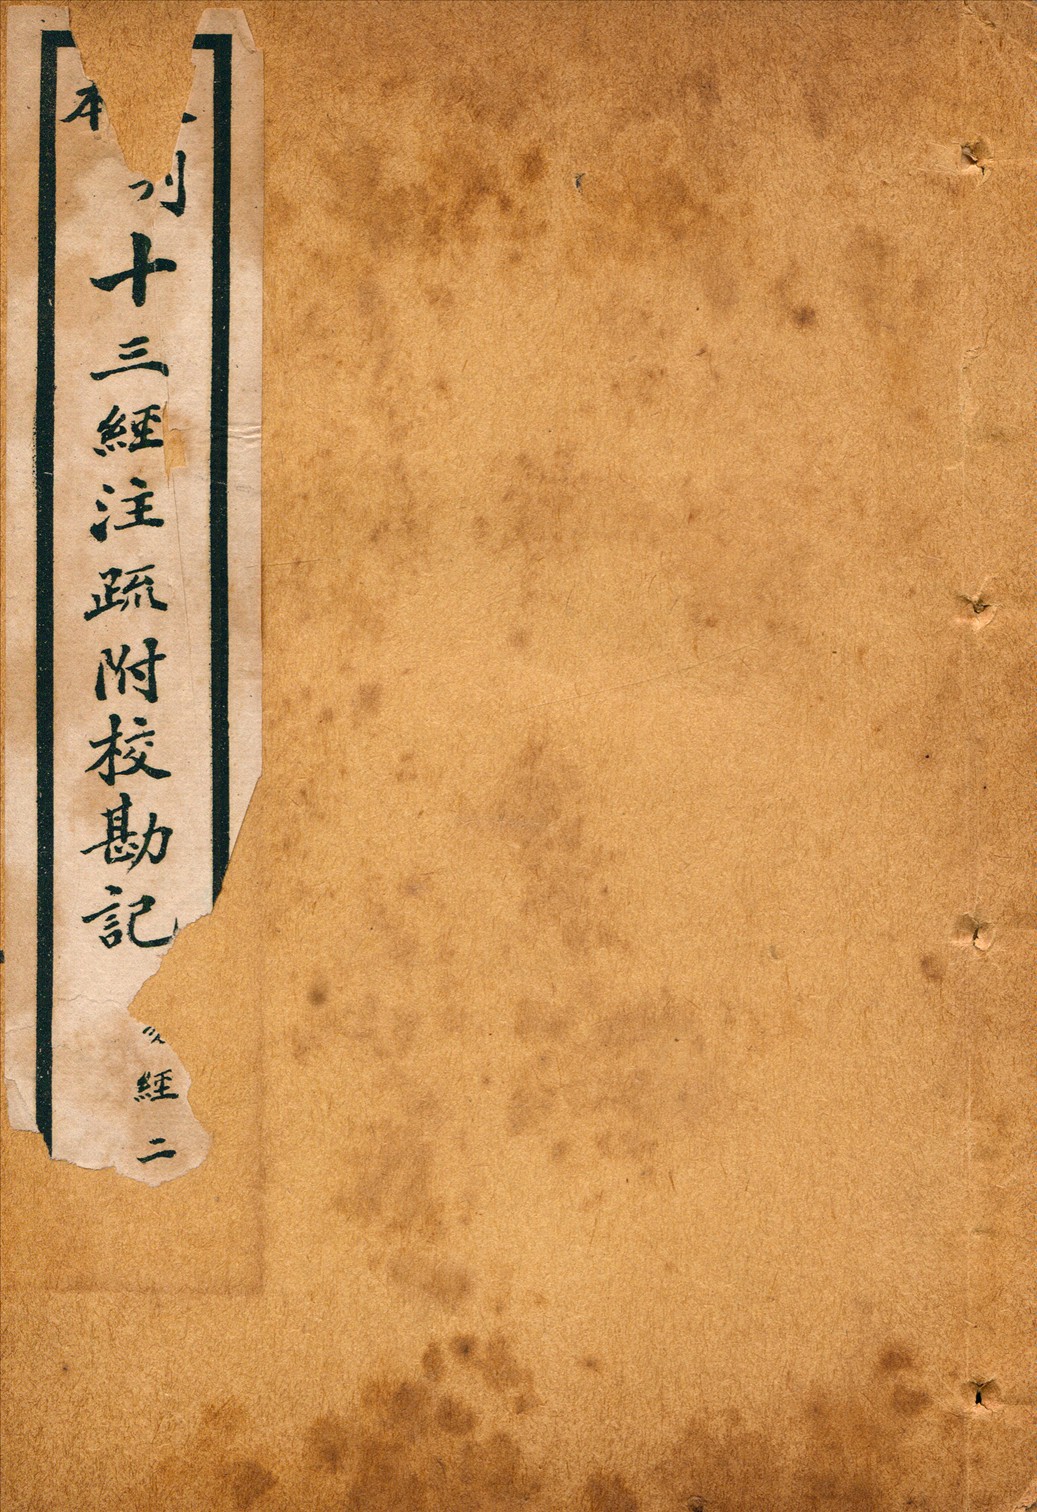 本
十三經注疏附校勘記
經二